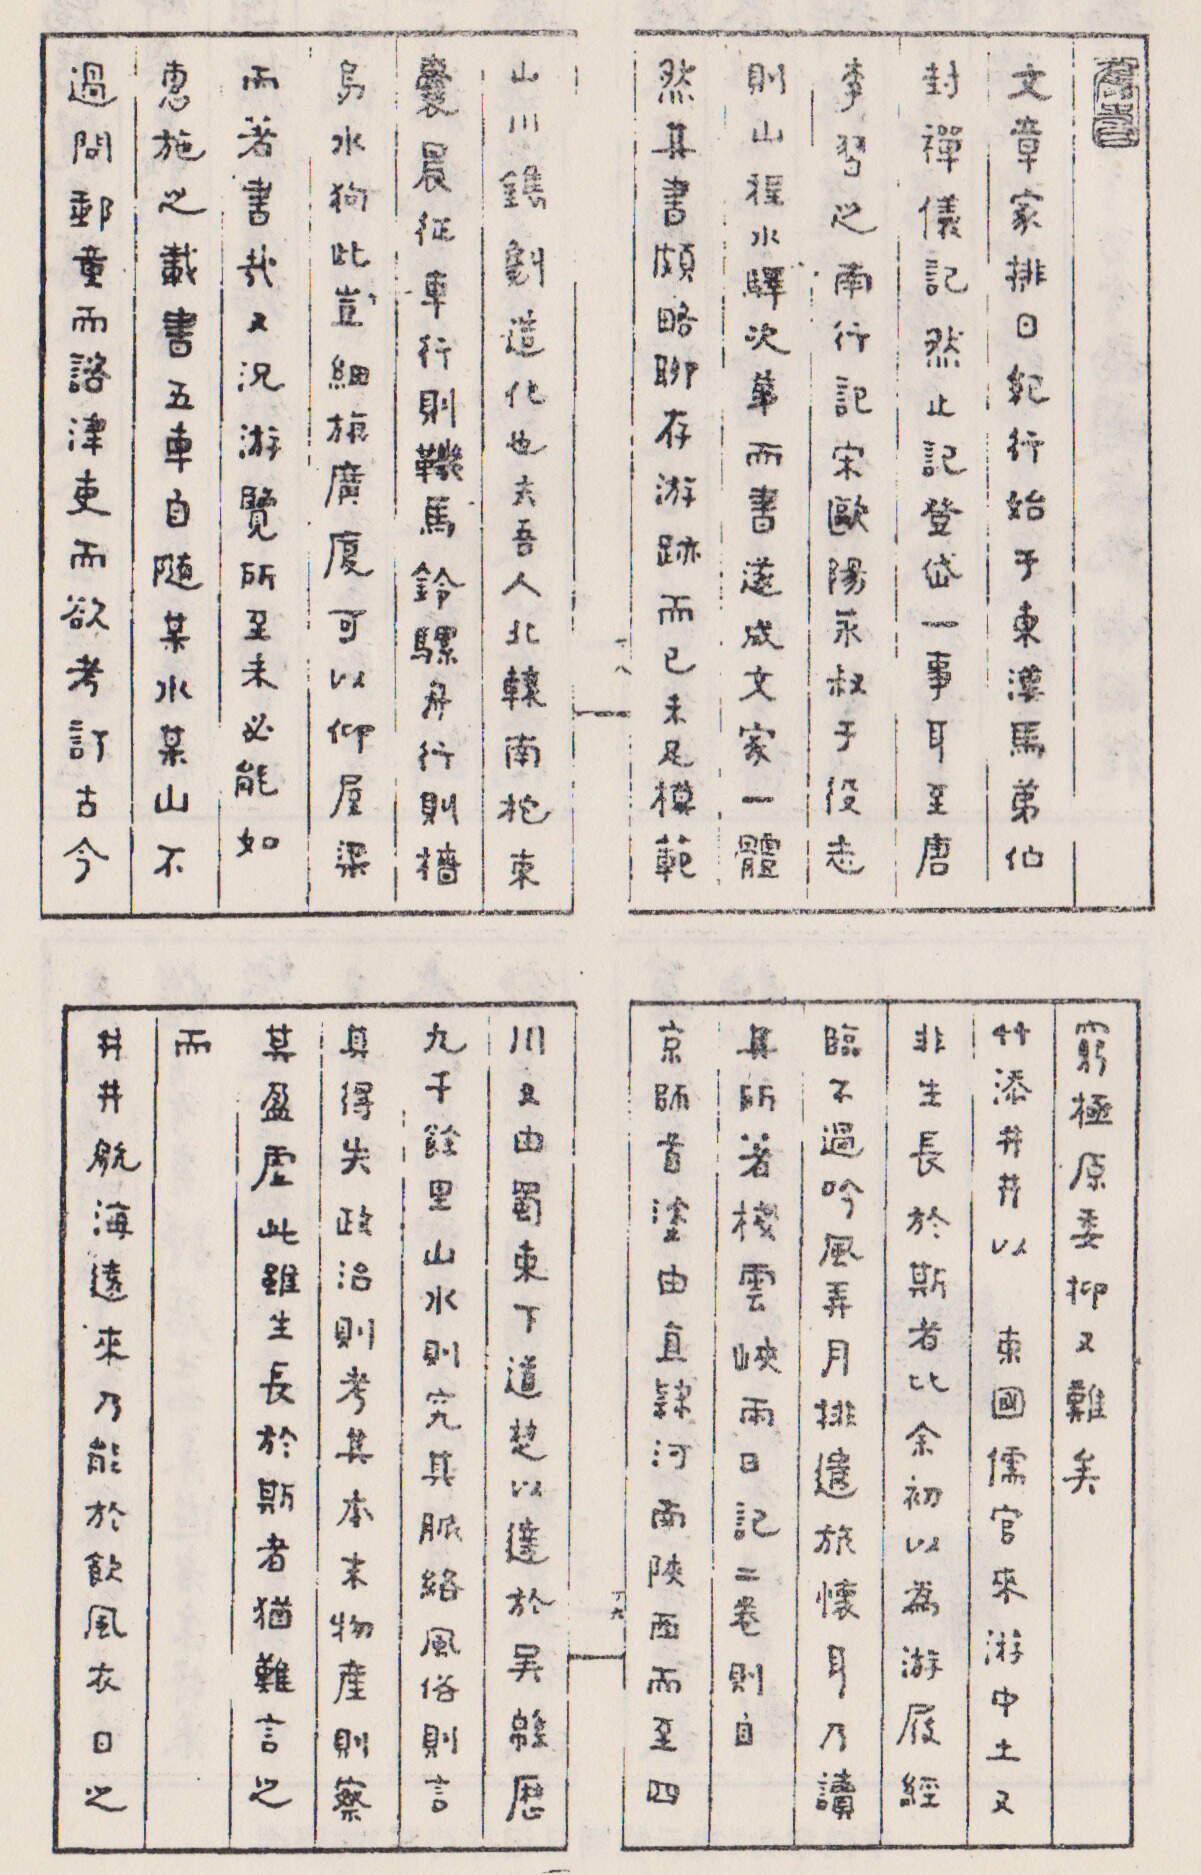 文章家排日紀行始于東漢馬第伯
封禪儀記然止記登岱一事耳至唐
李習之南行記宋歐陽永叔于役志
則山程水驛次第而書遂成文家一體
然其書頗略聊存游跡而已未足模範
山川鐫劖造化也夫吾人北轅南柁東
橐晨征車行則鞿馬鈴騾舟行則檣
烏水狗此豈細旃廣廈可以仰屋梁
而著書哉又況游覽所至未必能如
惠施之載書五車自隨某水某山不
過問郵童而諮津吏而欲考訂古今
窮極原委抑又難矣
竹添井井以 東國儒官來游中土又
非生長於斯者比余初以為游屐經
臨不過吟風弄月排遣旅懷耳乃讀
其所著棧雲峽雨日記二卷則自
京師首塗由直隸河南陝西而至四
川又由蜀東下道楚以達於吳緜歷
九千餘里山水則究其脈絡風俗則言
其得失政治則考其本末物產則察
其盈虛此雖生長於斯者猶難言之
而
井井航海遠來乃能於飲風衣日之